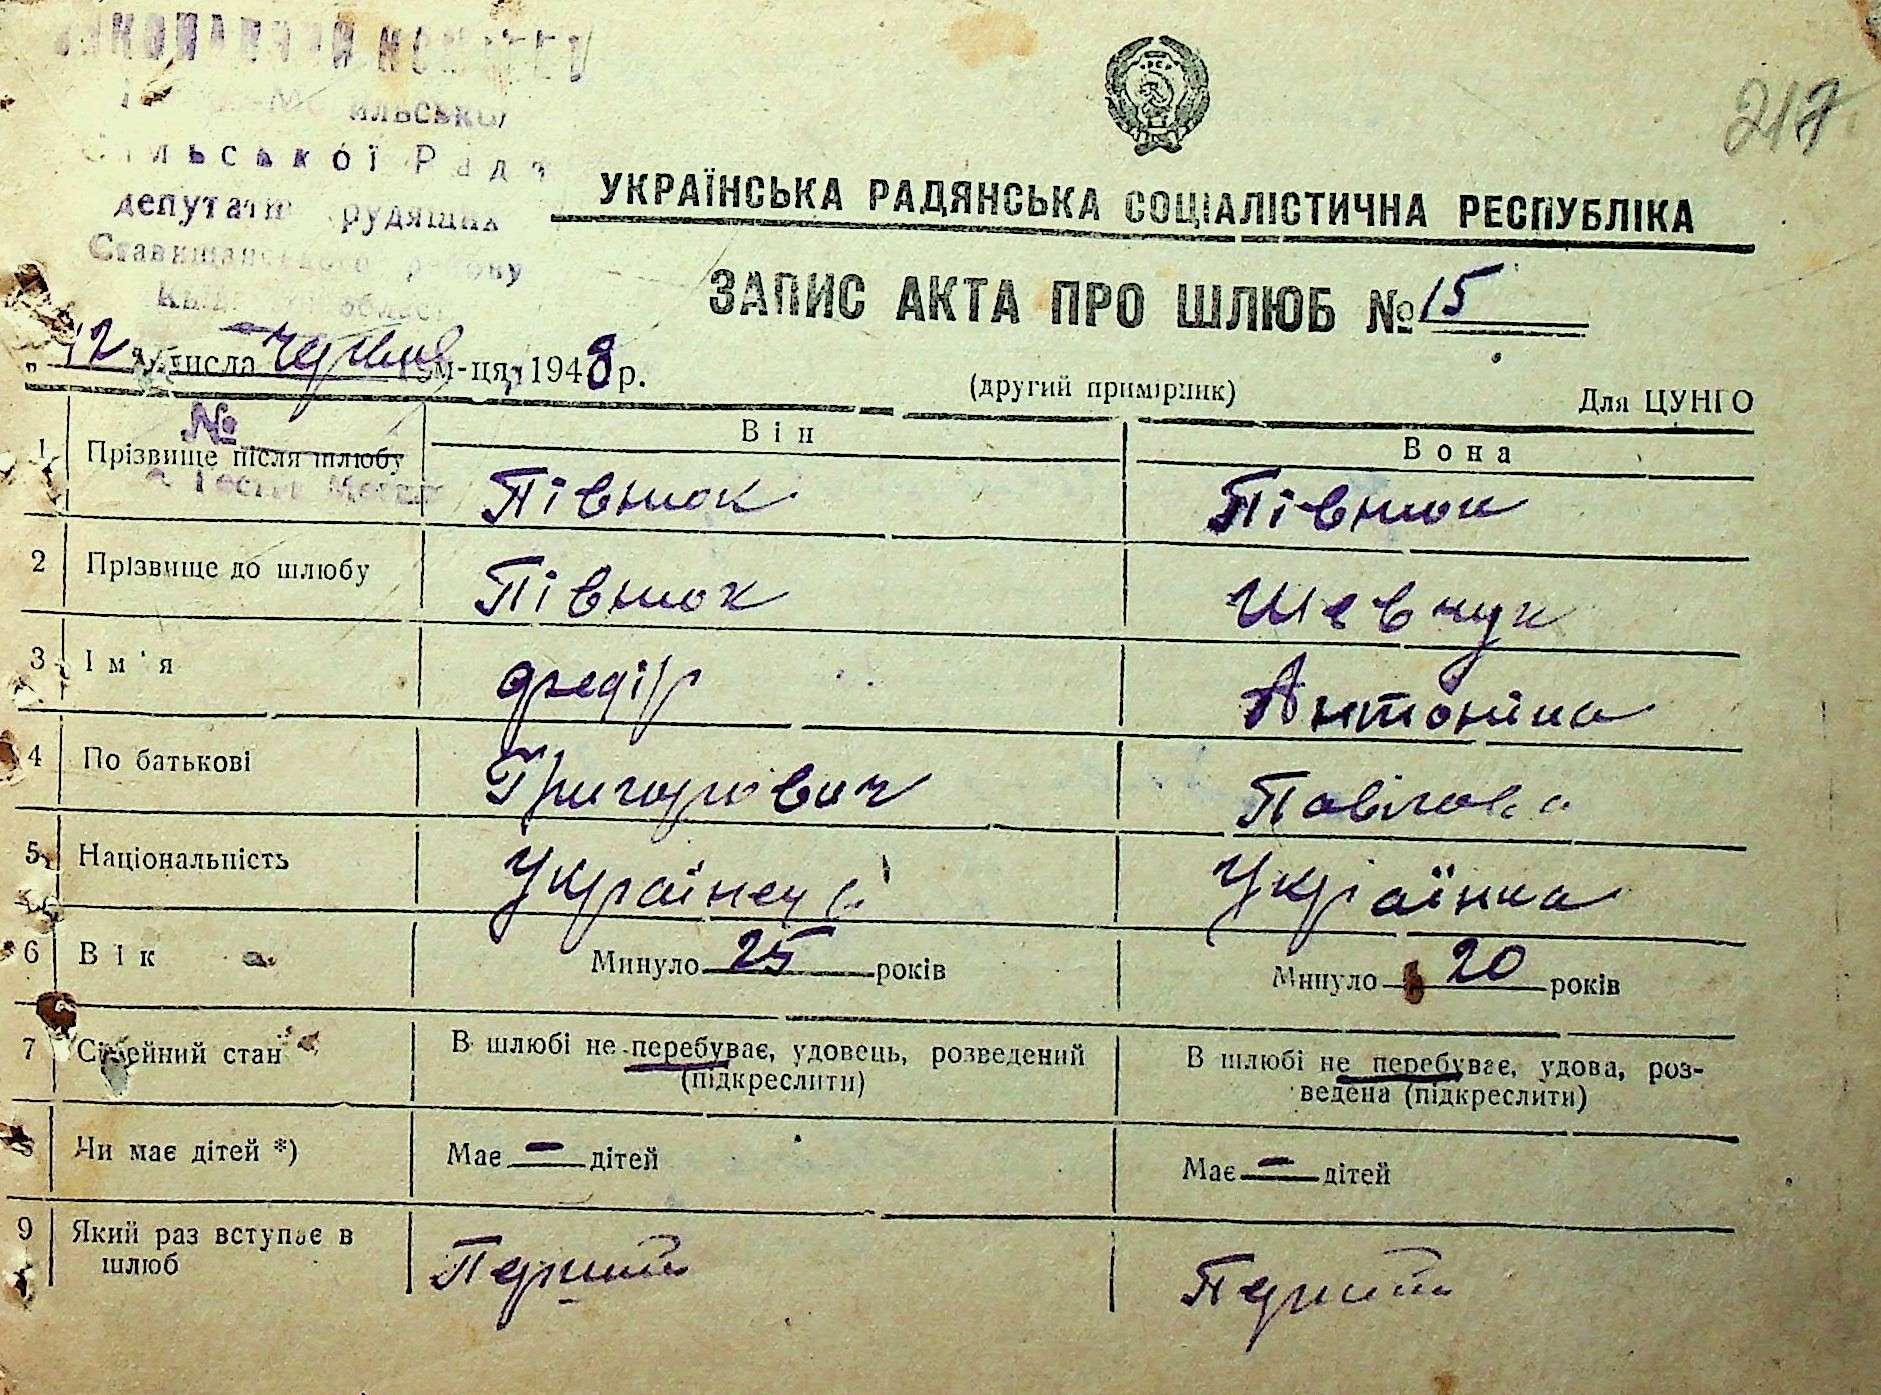 217
сільської Ради
депутатів трудящих
Ставищанського району
УКРАЇНСЬКА РАДЯНСЬКА СОЦІАЛІСТИЧНА РЕСПУБЛІКА
ЗАПИС АКТА ПРО ШЛЮБ № 15
"12" числа червня м-ця, 1948 р.
(другий примірник)
Для ЦУНГО
№
Він
Вона
1 Прізвище після шлюбу Півнюк Півнюк
2 Прізвище до шлюбу Півнюк Шевчук
3 Ім'я Федір Антоніна
4 По батькові Григорович Павловна
5 Національність Українець Українка
6 Вік Минуло 25 років Минуло 20 років
7 Сімейний стан В шлюбі не перебуває, удовець, розведений
(підкреслити)
В шлюбі не перебуває, удова, роз-
ведена (підкреслити)
8 Чи має дітей *) Має – дітей Має – дітей
9 Який раз вступає в
шлюб
Перший Перший